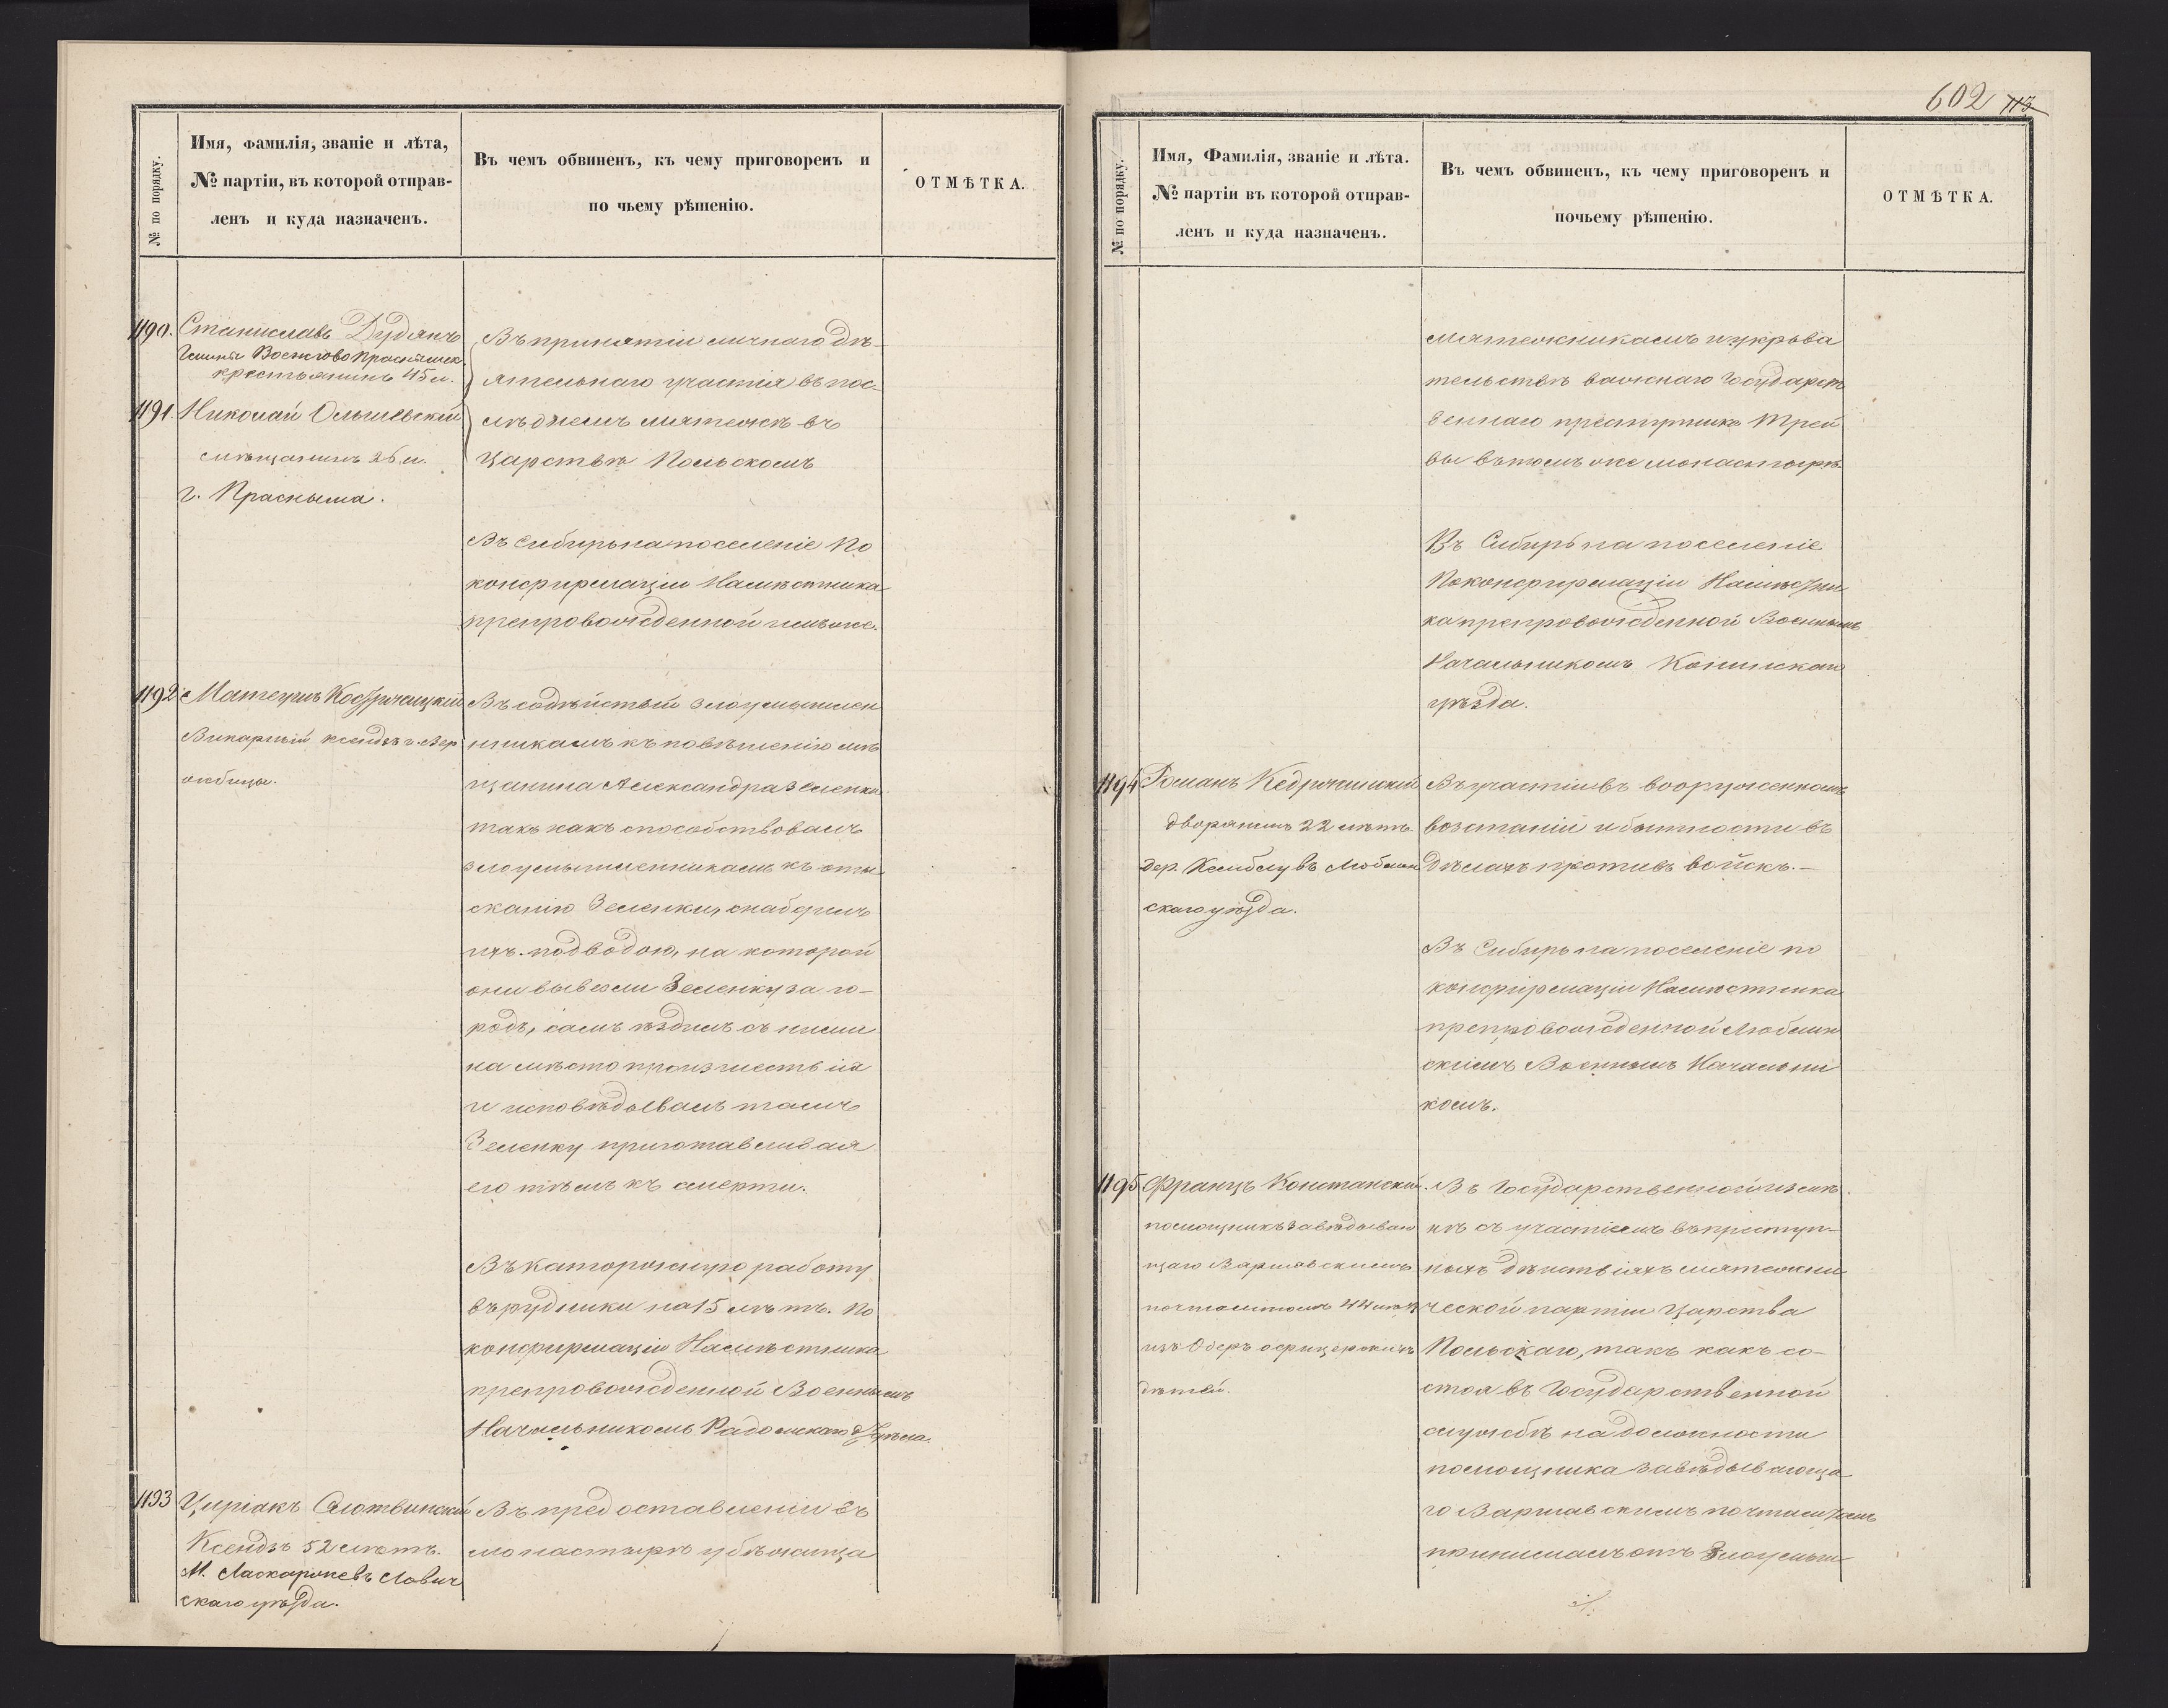 602 113
№ по порядку.
Имя, фамилія, званіе и лѣта,
№ партіи, въ которой отправ-
ленъ и куда назначенъ.
Въ чемъ обвиненъ, къ чему приговоренъ и
по чьему рѣшенію.
ОТМѢТКА.
1190. Станиславъ Дудякъ
крестьянинъ 45 л.
1191. Николай Ольшевскій
мѣщанинъ 26 л.
г. Прасныша.
Въ принятіи личнаго дѣ-
ятельнаго участія въ пос-
лѣднемъ мятежѣ въ
Царствѣ Польскомъ
Въ Сибирь на поселеніе По
конфирмаціи Намѣстника
препровожденной имъ же.
1192 Матеушъ
Викарный ксендзъ г. Вер
жбицы.
Въ содѣйствіи злоумышлен
никамъ къ повѣшенію мѣ
щанина Александра Зеленки
такъ какъ способствовалъ
злоумышленникамъ къ оты-
сканію Зеленки, снабдилъ
ихъ подводою, на которой
они вывезли Зеленку за го-
родъ, самъ ѣздилъ съ ними
на мѣсто произшествія
и исповѣдывалъ тамъ
Зеленку приготавливая
его тѣмъ къ смерти.
Въ каторжную работу
въ рудники на 15 лѣтъ. По
конфирмаціи Намѣстника
препровожденной Военнымъ
Начальникомъ Радомскаго
1193 Циріакъ Слотвинскій
Ксендзъ 52 лѣтъ.
М. Ласкаржевъ Лович
скаго уѣзда.
Въ предоставленіи въ
монастырѣ убѣжища
№ по порядку.
Имя, Фамилія, званіе и лѣта.
№ партіи въ которой отправ-
ленъ и куда назначенъ.
Въ чемъ обвиненъ, къ чему приговоренъ и
почьему рѣшенію.
ОТМѢТКА.
мятежникамъ и укрыва
тельствѣ важнаго Государст
веннаго преступника Трей
вы въ томъ же монастырѣ.
Въ Сибирь на поселеніе
По конфирмаціи Намѣстни
ка препровожденной Военнымъ
Начальникомъ Конинскаго
уѣзда.
1194 Романъ Кедржинскій
дворянинъ 22 лѣтъ
дер. въ Люблин
скаго уѣзда.
Въ участіи въ вооруженномъ
возстаніи и бытности въ
дѣлахъ противъ войскъ.—
Въ Сибирь на поселеніе по
конфирмаціи Намѣстника
препровожденной Люблин
скимъ Военнымъ Начальни
комъ.
1195 Францъ Констанскій.
помощникъ завѣдываю
щаго Варшавскимъ
почтамтомъ 44 лѣтъ
изъ Оберъ офицерскихъ
дѣтей.
Въ Государственной измѣ
нѣ съ участіемъ въ преступ-
ныхъ дѣйствіяхъ мятежни
ческой партіи Царства
Польскаго, такъ какъ со-
стоя въ Государственной
службѣ на должности
помощника завѣдывающа
го Варшавскимъ почтамтомъ
принималъ отъ Злоумыш